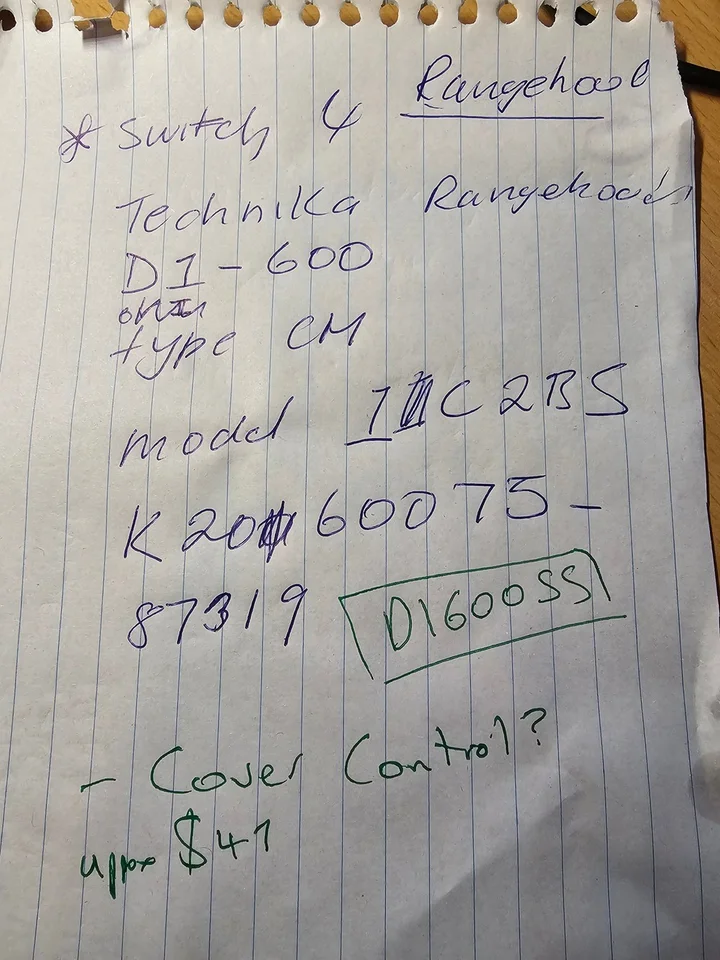 Rangehood
* Switch 4
Technika Rangehoods
D1-600
type CM
model 1 C2BS
K20 60075-
87319 D1600SS
- Cover Control?
appx $47